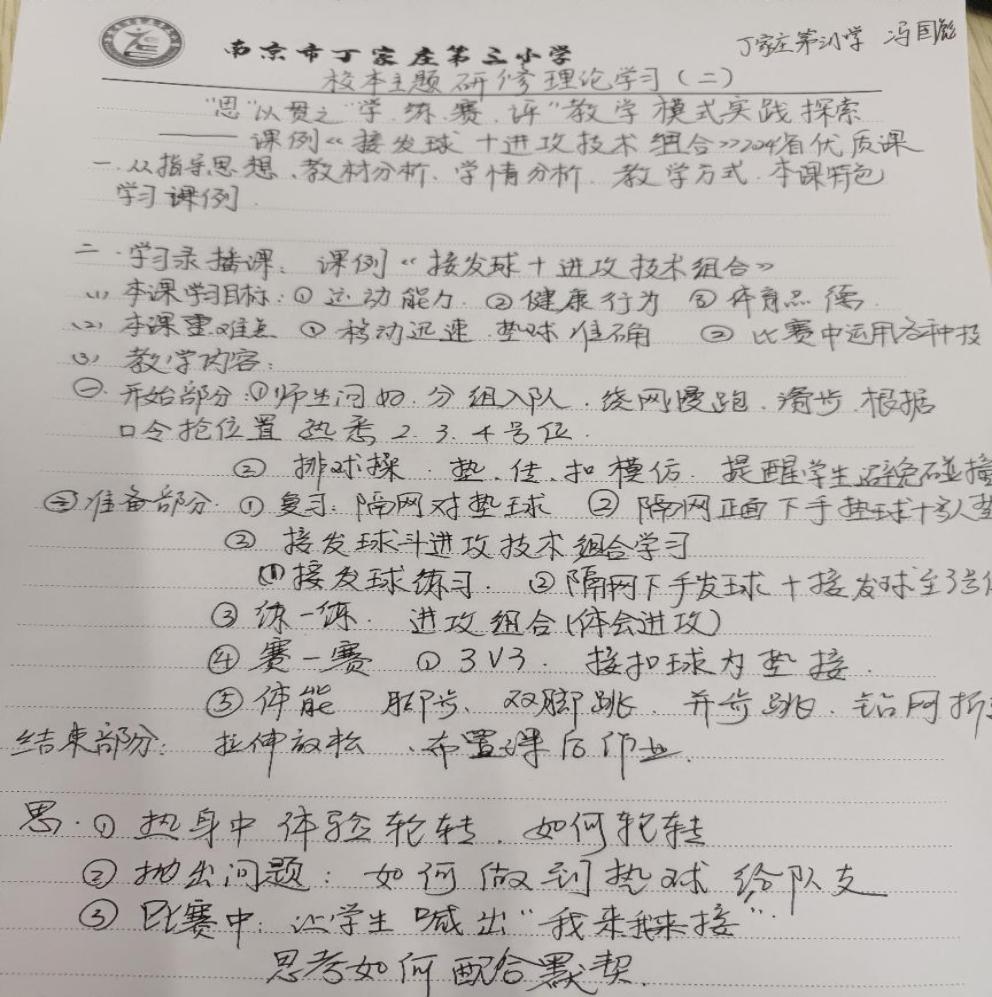 丁家庄第三小学 冯国彪
南京市丁家庄第三小学
校本主题研修理论学习(二)
"思"以贯之"学.练.赛.评"教学模式实践探索
——课例《接发球十进攻技术组合》2024省优质课
一.从指导思想、教材分析、学情分析.教学方式.本课特色
学习课例.
二.学习录播课:课例《接发球十进攻技术组合》
(1)本课学习目标:①运动能力 ②健康行为 ③体育品德.
(2)本课重难点 ①移动迅速.垫球准确 ②比赛中运用各种技
(3)教学内容:
㊀.开始部分:①师生问好.分组入队.绕网慢跑.滑步.根据
口令抢位置 熟悉2.3.4号位.
② 排球操.垫.传.扣模仿.提醒学生避免碰撞
㊁准备部分.①复习.隔网对垫球 ②隔网正面下手垫球十3人垫
② 接发球十进攻技术组合学习
①接发球练习. ②隔网下手发球十接发球至3号位
③ 练一练. 进攻组合(体会进攻)
④ 赛一赛 ①3V3. 接扣球为垫接.
⑤体能 双脚跳.并步跳.钻网折
结束部分:拉伸放松、布置课后作业.
思.①热身中体验轮转.如何轮转
②抛出问题:如何做到垫球给队友
③比赛中:让学生喊出"我来我来接".
思考如何配合默契.